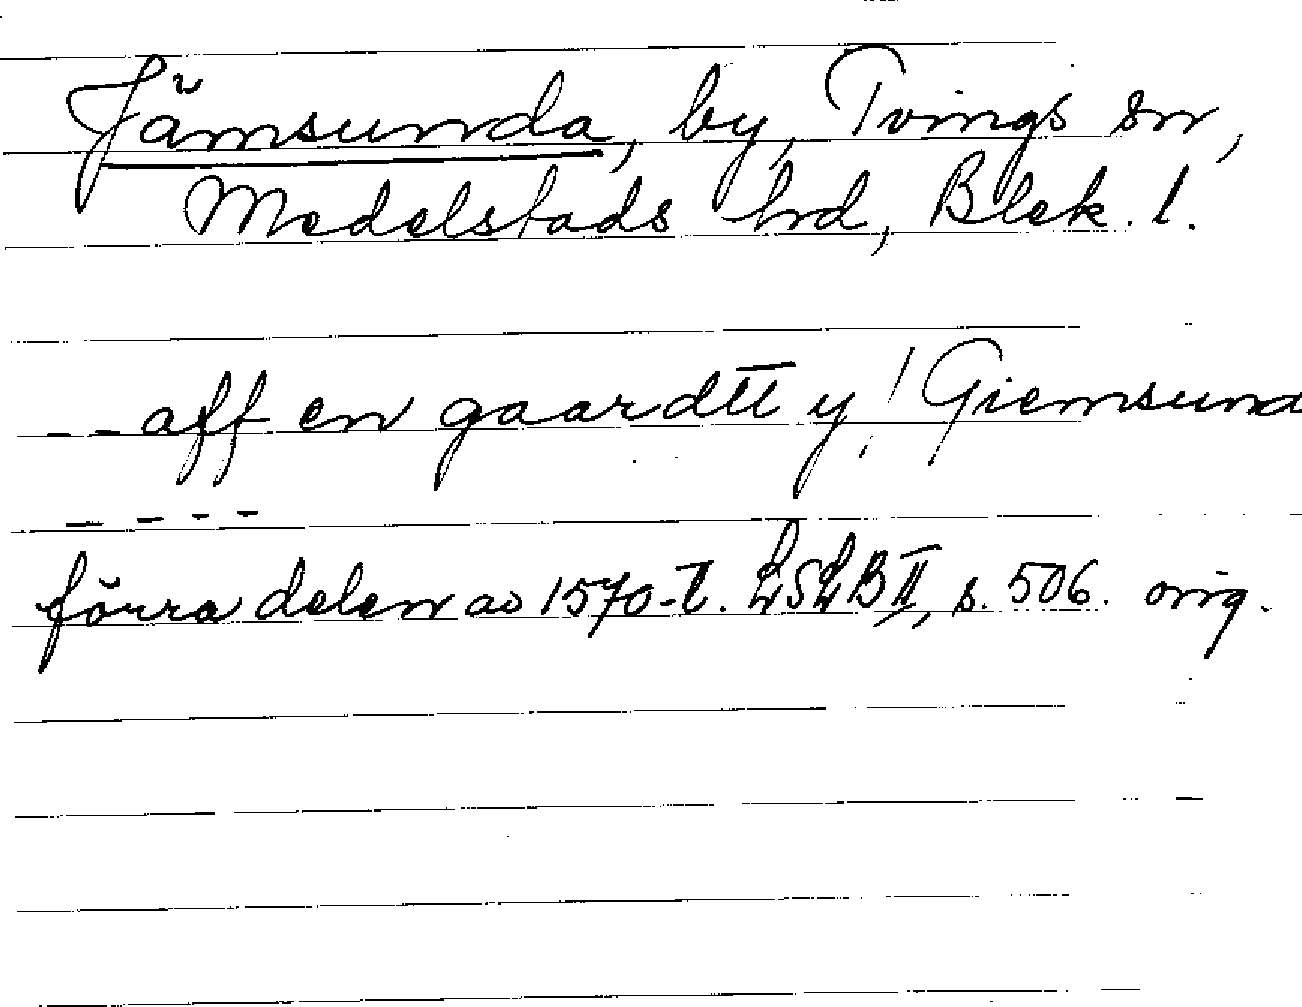 Jämsunda, by, Tvings sn,
Medelstads hrd, Blek. l.
-- aff en gaardtt y ! Giemsund
- - - -
förra delen av 1570-t. LSLB II, s. 506. orig.